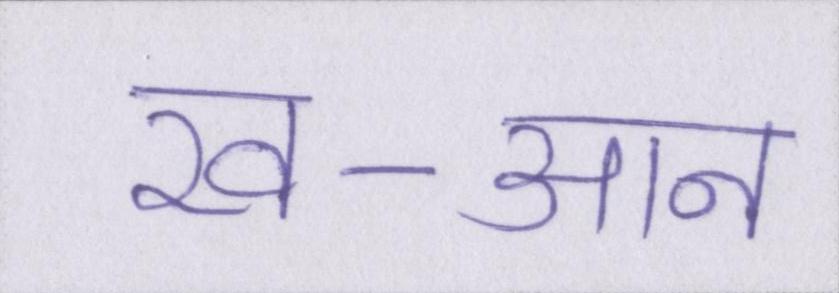 ख-आन